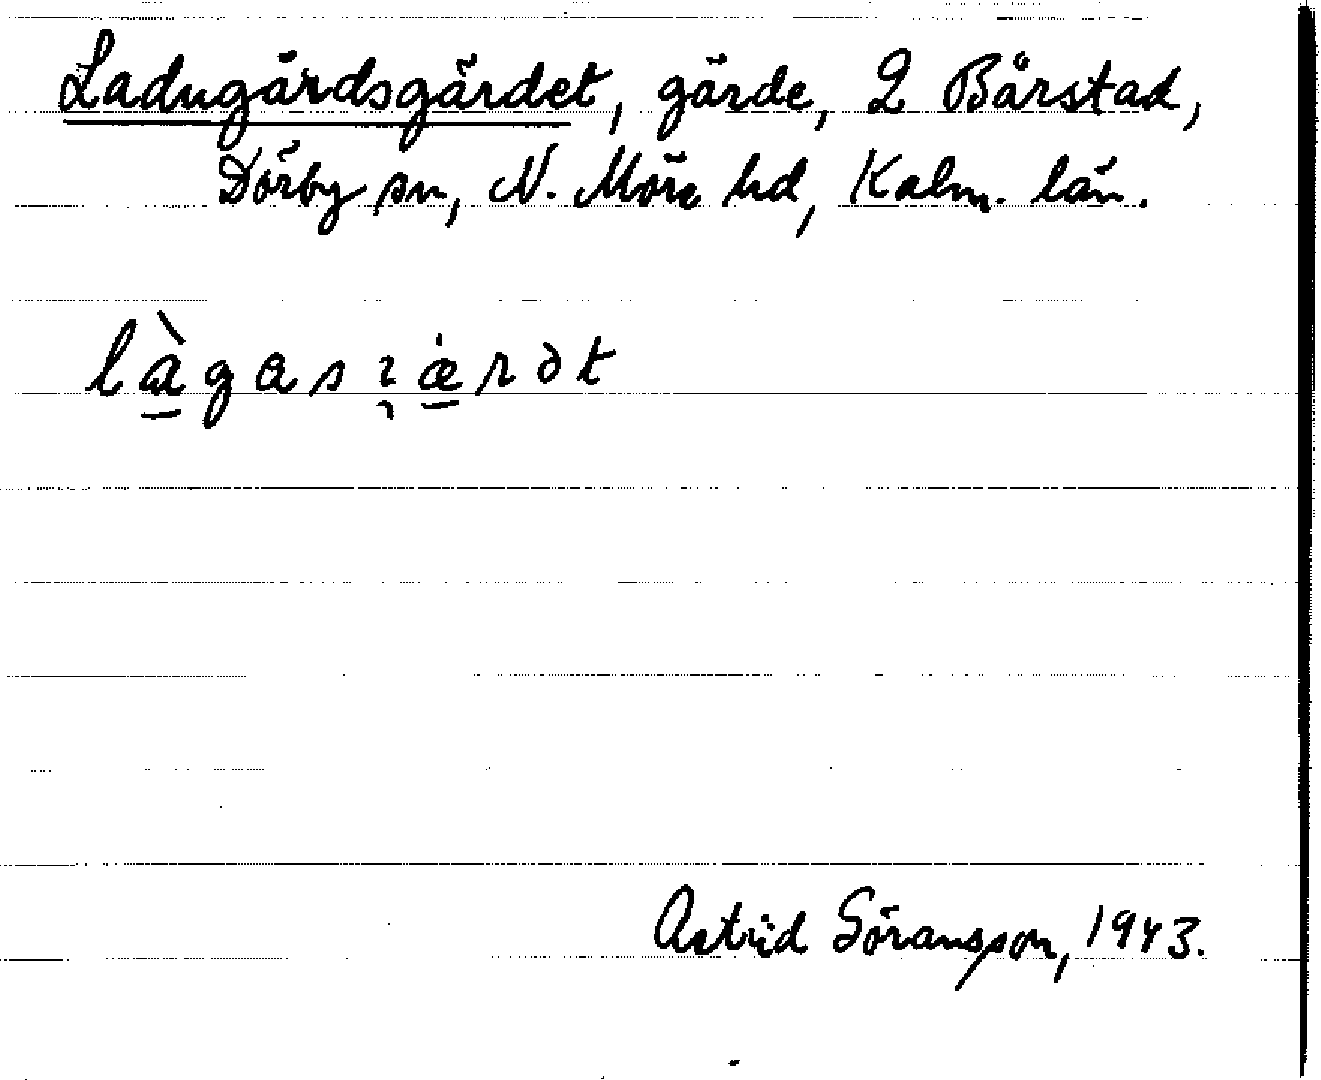 Ladugårdsgärdet, gärde, 2 Bårstad,
Dörby sn, N. Möre hd, Kalm. län.
làgasɿærdt
Astrid Göransson, 1943.